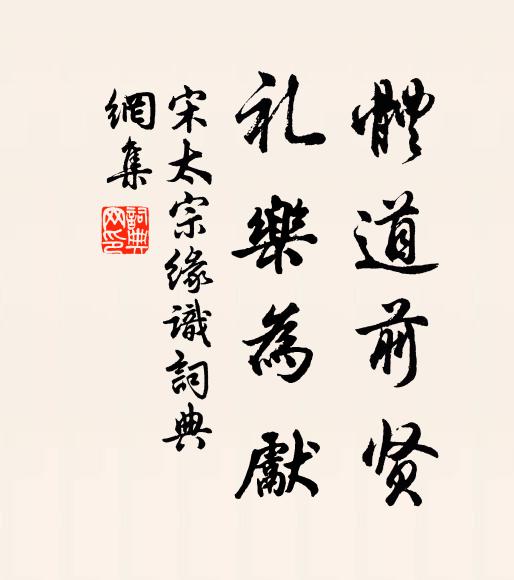 體道前贤
礼樂為獻
宋太宗緣識詞典
網集
詞典
网印